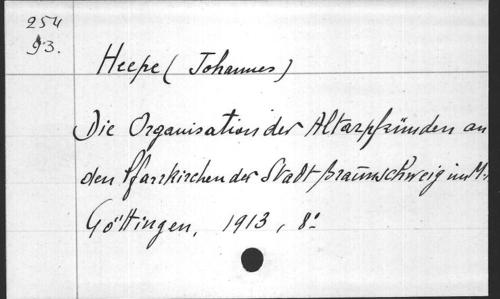 254
93.
Heepe (Johannes)
Die Organisation der Altarpfründen an
den Pfarrkirchen der Stadt Braunschweig im M.
Göttingen, 1913, 8º